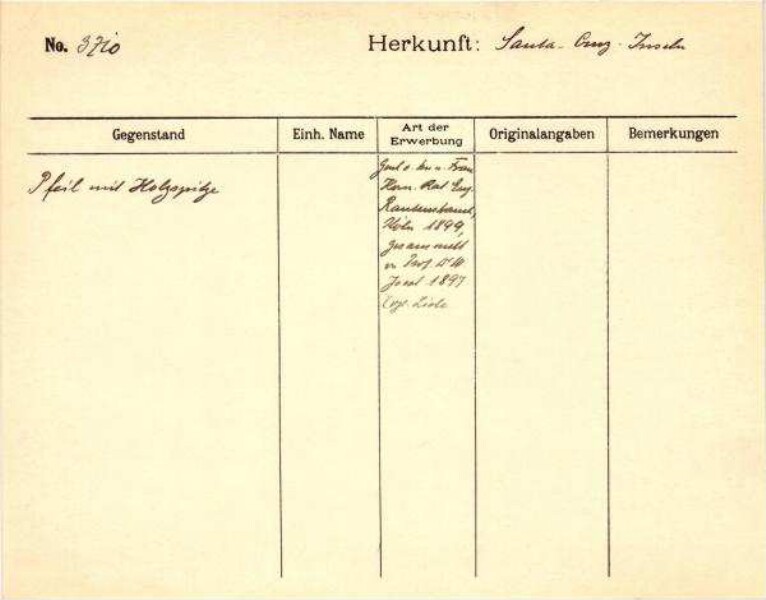 No. 3710
Herkunft: Santa-Cruz-Inseln
Gegenstand
Einh. Name
Art der
Erwerbung
Originalangaben
Bemerkungen
Pfeil mit Holzspitze
Frau
Rat Eug.
Rautenstrauch,
Köln 1899,
gesammelt
v. Prof. Dr. W.
Joest 1897